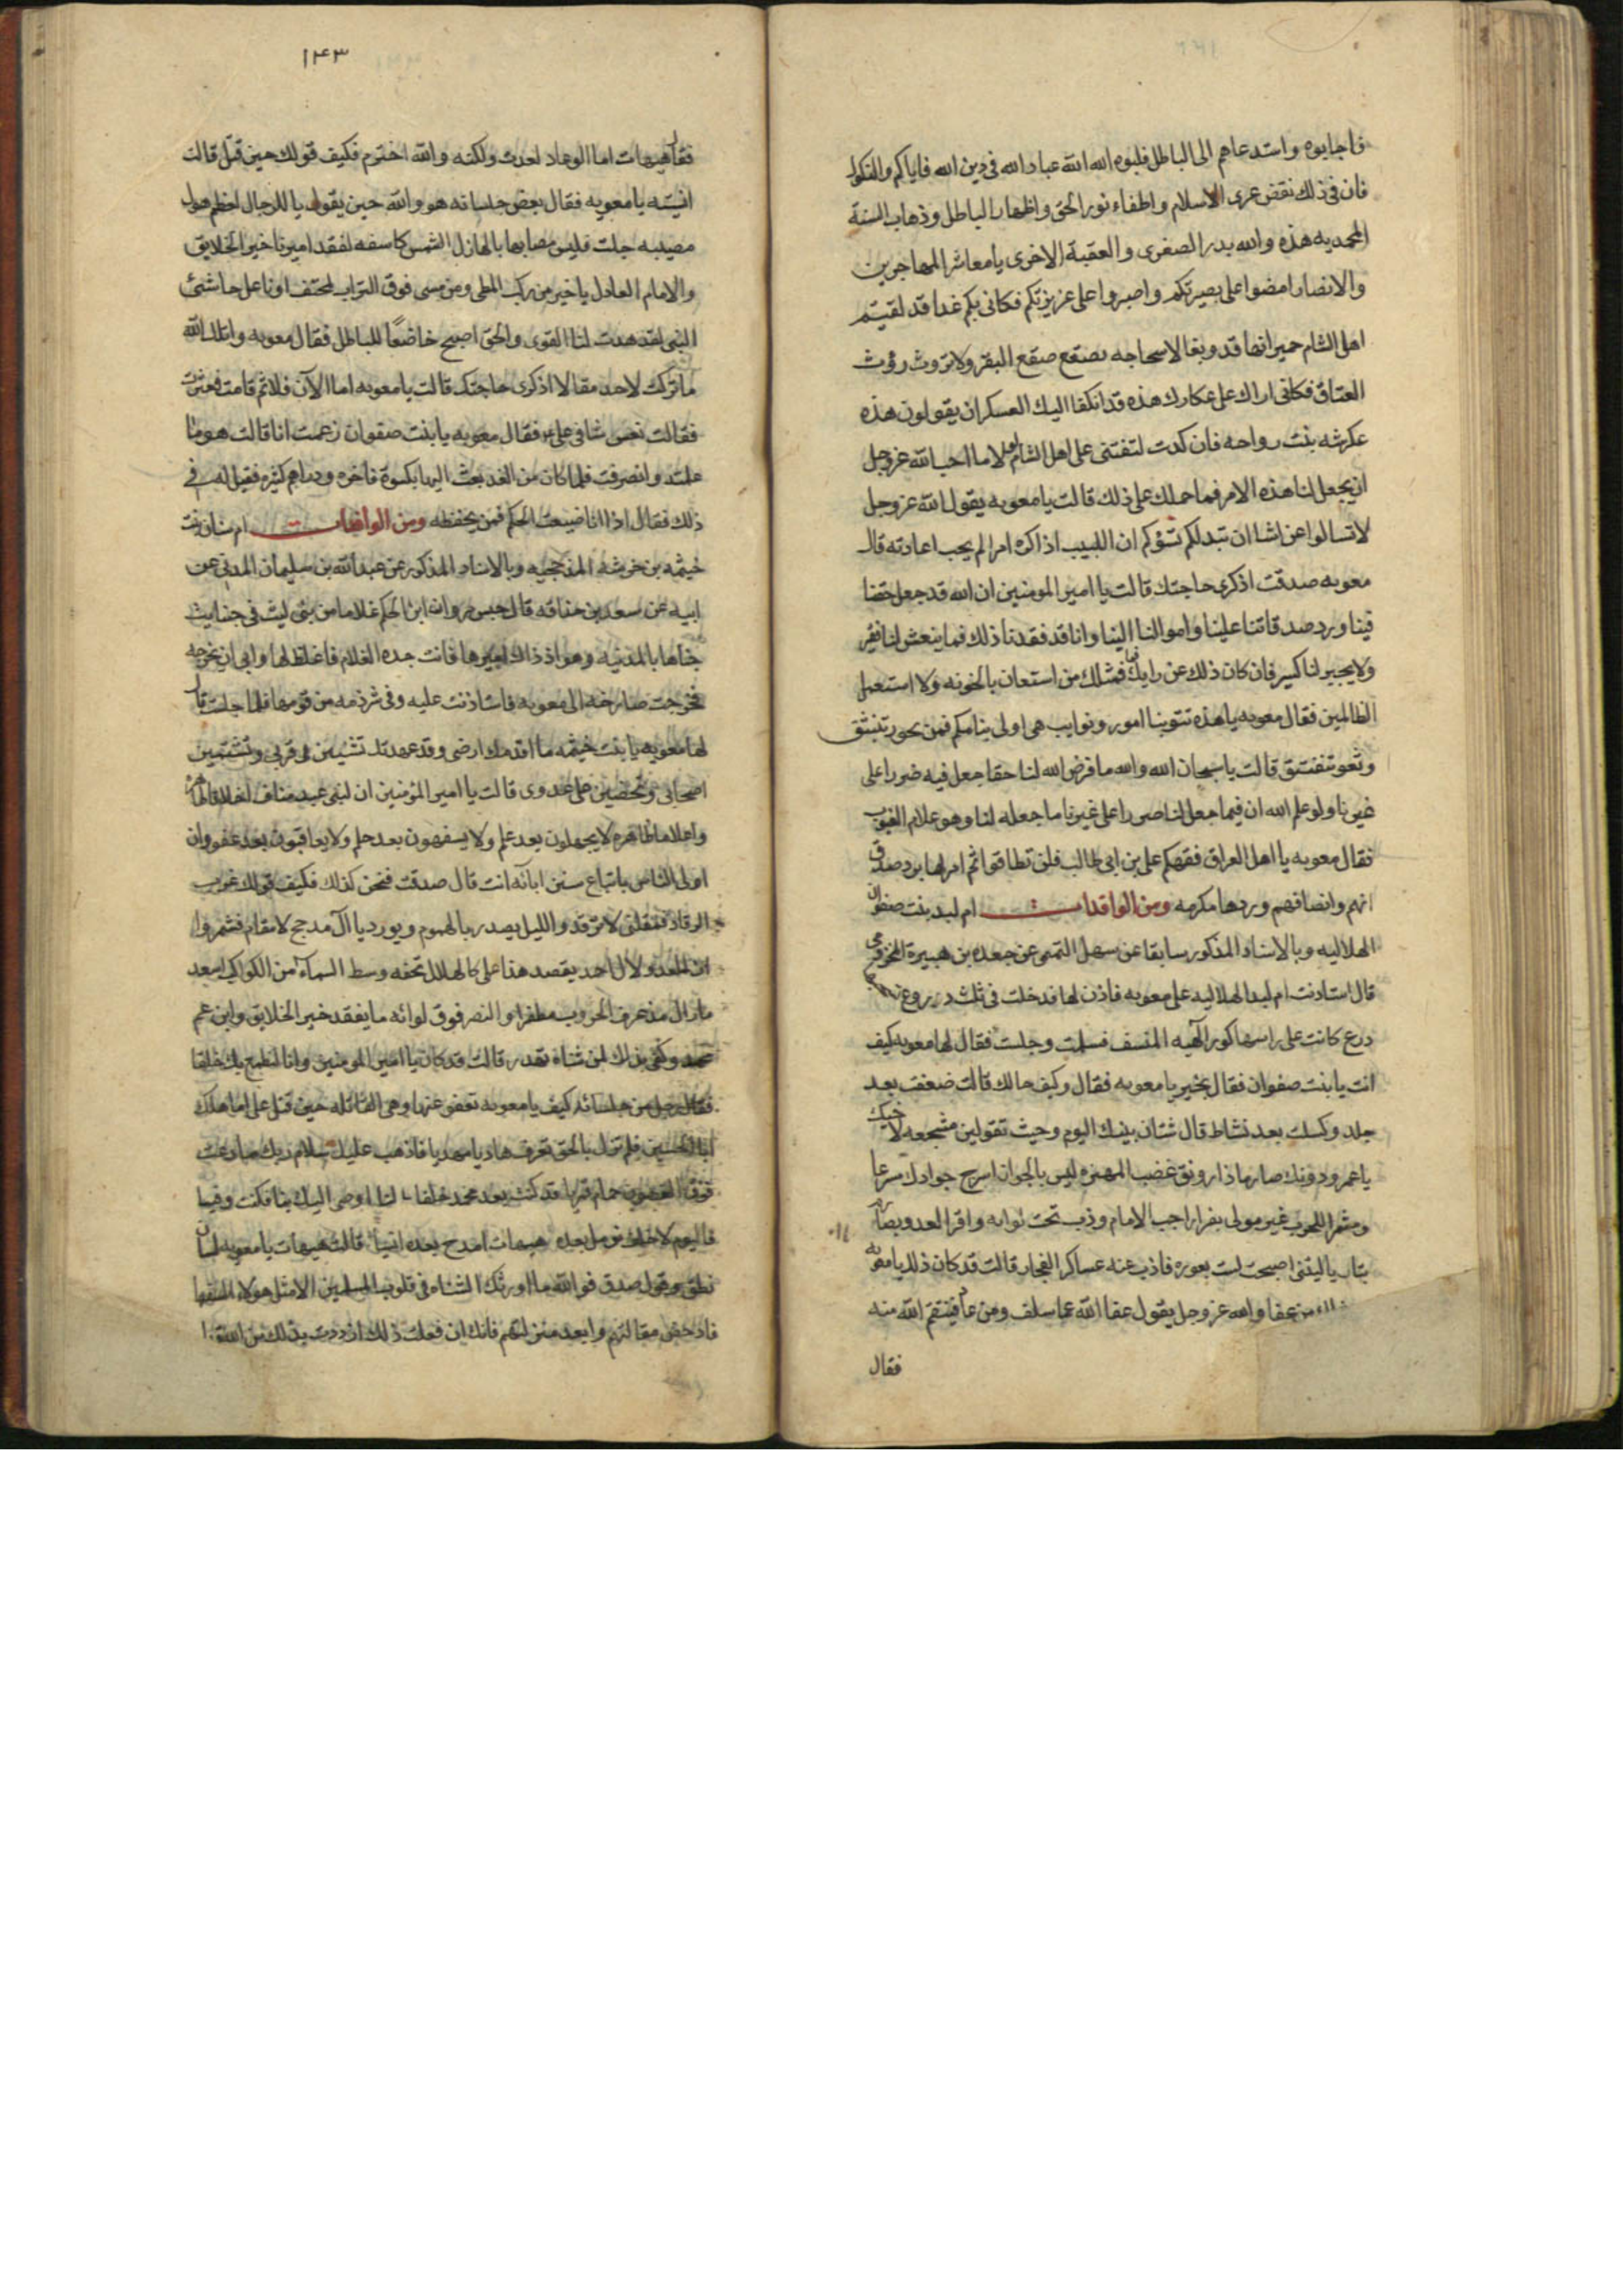 فاجابوه واستدعاهم الى الباطل فلبوه الله الله عباد الله فى دين الله فاياكم والتكول
فان فى ذلك نقض عرى الاسلام واطفاء نور الحق واظهار الباطل وذهاب السنة
المحمديه هذه والله بدر الصغرى والعقبة الاخرى يا معاشر المهاجرين
والانصار امضوا على بصيرتكم واصبروا على عزيزتكم فكانى بكم غدا قد لقيتم
اهل الشام حمير انها قد وبغا لاسحاجه بصقع صقع البقر ولا تروث رؤث
العتاق فكانى اراك على عكارك هذه قد انكفا اليك العسكران يقولون هذه
عكرشه بنت رواحه فان كدت لتفتنى على اهل الشام لولا ما احب الله عز وجل
ان يجعل لنا هذه الامر فما حملك على ذلك قالت يا معويه يقول الله عز وجل
لا تسالوا عن اشيا ان تبد لكم تسؤكم ان اللبيب اذا كره امرا لم يحب اعادته قال
معويه صدقت اذكرى حاجتك قالت يا امير المومنين ان الله قد جعل حقنا
فينا ورد صدقاتنا علينا واموالنا الينا وانا قد فقدنا ذلك فما ينعش لنا فقير
ولا يجبر لنا كسير فان كان ذلك عن رايك فمثلك من استعان بالخونه ولا استعمل
الظالمين فقال معويه يا هذه تنتوبنا امور ونوايب هى اولى بنا منكم فمن بحور تنبثق
وثغو تنفتق قالت يا سبحان الله والله ما فرض الله لنا حقا جعل فيه ضررا على
غيرنا ولو علم الله ان فيما جعل لنا ضررا على غيرنا ما جعله لنا وهو علام الغيوب
فقال معويه يا اهل العراق فقهكم على بن ابى طالب فلن تطاقوا ثم امر لها برد صدق
انهم وانصافهم وردها مكرمه ومن الوافدات ام لبد بنت صفوان
الهلاليه وبالاسناد المذكور سابقا عن سهل التميمى عن جعده بن هبيرة المخزومى
قال استاذنت ام لبد الهلاليه على معويه فاذن لها فدخلت فى ثلث دروع
درع كانت على راسها كور الهيه المنسف فسلمت وجلست فقال لها معويه كيف
انت يا بنت صفوان فقال بخير يا معويه فقال وكيف حالك قالت ضعفت بعد
جلد وكسلت بعد نشاط قال شتان بينك اليوم وحيث تقولين مشجعه لاخيك
يا عمرو دونك صارما ذا رونق غضب المهزه ليس بالجوان اسرج جوادك سرعا
ومشمرا للحرب غير مولى بفرار اجب الامام وذب تحت لوائه واقر العدو بصارم
بتار يا ليتنى اصبحت لست بعوره فاذب عنه عساكر الفجار قالت قد كان ذلك يا معويه
عفا والله عز وجل يقول عفا الله عما سلف ومن عاد فينتقم الله منه
فقال
١٤٣
فقال هيهات اما لو عاد لعدت ولكنه والله اخترم فكيف قولك حين قتل قالت
انسيته يا معويه فقال بعض جلسائه هو والله حين يقول يا للرجال لعظم هول
مصيبه جلت فليس مصابها بالهازل الشمس كاسفه لفقد اميرنا خير الخلايق
والامام العادل يا خير من ركب المطى ومن مشى فوق التراب لمحتف او ناعل حاشى
النبى لقد هدت لنا القوى والحق اصبح خاضعا للباطل فقال معويه واتلك الله
ما تركت لاحد مقالا اذكرى حاجتك قالت يا معويه اما الآن فلا ثم قامت فعثرت
فقالت تعس شانى على فقال معويه يا بنت صفوان زعمت انا قالت هو ما
علمت وانصرفت فلما كان من الغد بعث اليها بكسوة فاخره ودراهم كثيره فقيل له فى
ذلك فقال اذا انا ضيعت الحكم فمن يحفظه ومن الوافدات ام سنان بنت
خيثمه بن خرشه المذحجيه وبالاسناد المذكور عن عبد الله بن سليمان المدنى عن
ابيه عن سعد بن حذاقه قال حبس مروان ابن الحكم غلاما من بنى ليث فى جنايت
جناها بالمدنيه وهو اذ ذاك اميرها فاتت جده الغلام فاغلظ لها وابى ان يخرجه
فخرجت صارخه الى معويه فاستاذنت عليه وفى شرذمه من قومها فلما جلست قال
لها معويه يا بنت خيثمه ما اقدمك ارضى وقد عهدتك تشنين قربى وتشتمين
اصحابى وتحضين على عدوى قالت يا امير المؤمنين ان لبنى عبد مناف اخلاقا طاهره
واعلاما ظاهره لا يجهلون بعد علم ولا يسفهون بعد حلم ولا يعاقبون بعد عفو وان
اولى الناس باتباع سنن ابائه انت قال صدقت فنحن كذلك فكيف قولك غرب
الرقاد فمقلتى لا ترقد والليل يصدر بالهموم ويورد يا آل مدحج لا مقام فشمروا
ان العدو لآل احمد يقصد هذا على كالهلال تحفه وسط السماء من الكواكب اسعد
ما زال مذ عرف الحروب مظفرا والنصر فوق لوائه ما يفقد خير الخلايق وابن عم
محمد وكفى بذلك لمن شناه تهدد قالت قد كان يا امير المومنين وانا لنطمع بك خلفا
فقال رجل من جلسائه كيف يا معويه تعفو عنها وهى القائله حين قتل على اما هلكت
ابا الحسين فلم تزل بالحق تعرف هاديا مهديا فاذهب عليك سلام ربك ما دعت
فوق الغصون حمام قمريا قد كنت بعد محمد خلفا لنا اوصى اليك بنا فكنت وفيا
فاليوم لا خلف نومل بعده هيهات امدح بعده انسيا قالت هيهات يا معويه لسان
نطق وقول صدق فوالله ما اورثك الشناه فى قلوب المسلمين الا مثل هولاء السفها
فادحض مقالتهم وابعد منزلتهم فانك ان فعلت ذلك ازددت بذلك من الله